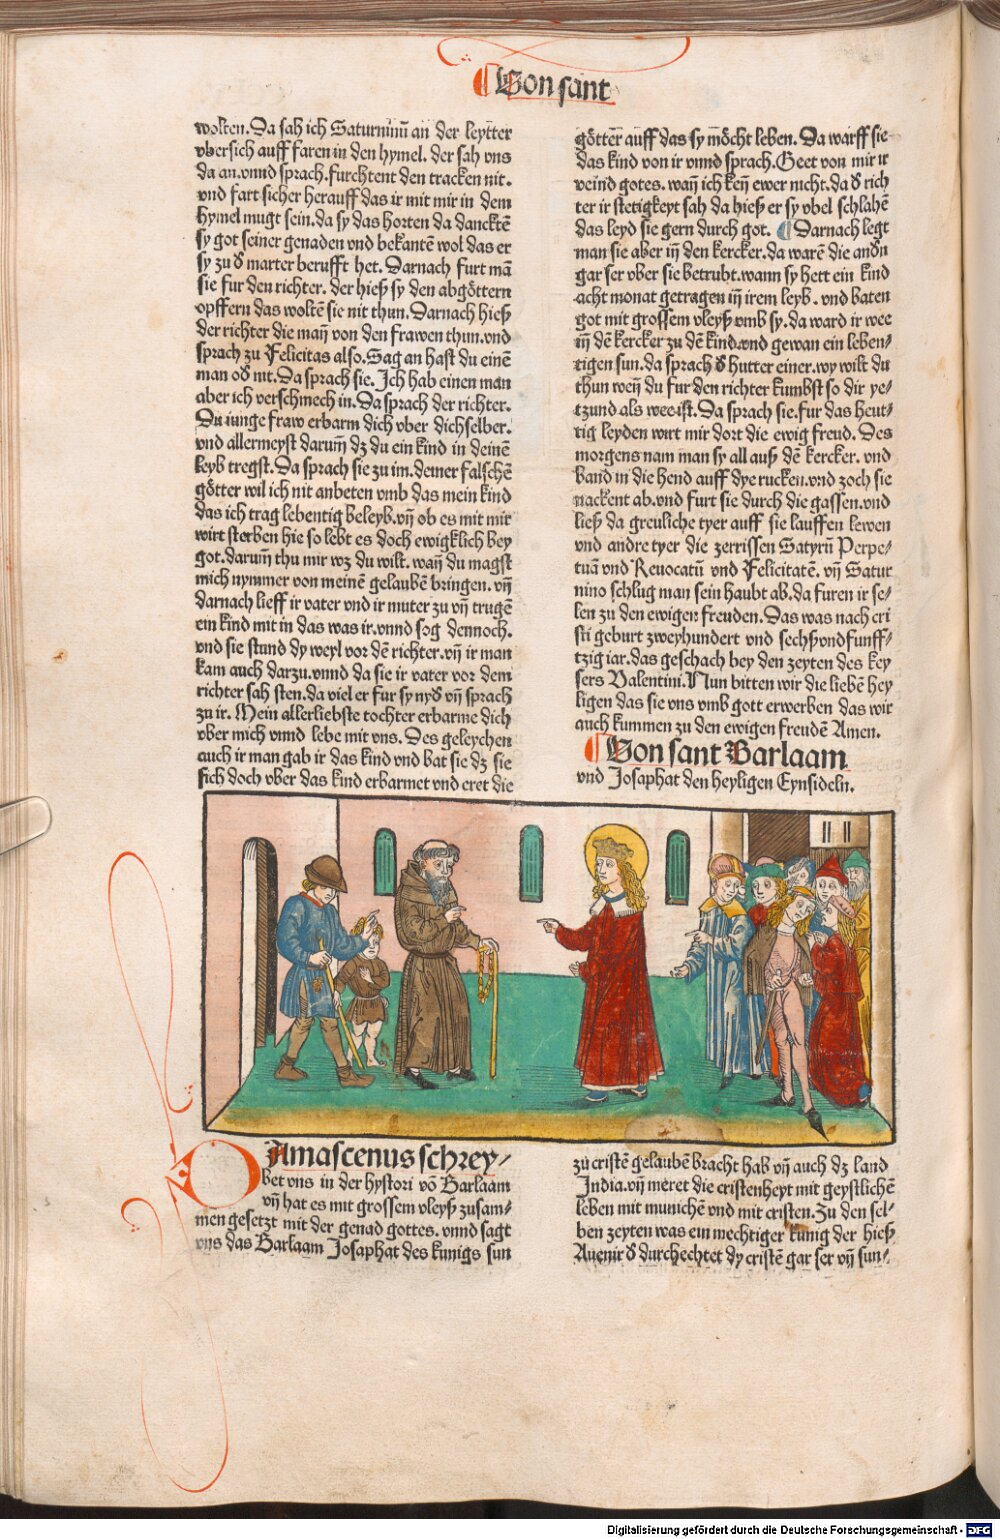 Von sant
wolten. Da sah ich Saturninū an der leytter
vbersich auff faren in den hymel. der sah vns
da an. vnnd sprach. furchtent den tracken nit.
vnd fart sicher herauff das ir mit mir in dem
hymel mugt sein. da sy das horten da dancktē
sy got seiner genaden vnd bekantē wol das er
sy zu d marter berufft het. Darnach furt mā
sie fur den richter. der hieß sy den abgöttern
opffern das woltē sie nit thun. Darnach hieß
der richter die mañ von den frawen thun. vnd
sprach zu Felicitas also. Sag an hast du einē
man od nit. Da sprach sie. Ich hab einen man
aber ich verschmech in. Da sprach der richter.
Du iunge fraw erbarm dich vber dichselber.
vnd allermeyst darum̄ dz du ein kind in deinē
leyb tregst. Da sprach sie zu im. deiner falschē
götter wil ich nit anbeten vmb das mein kind
das ich trag lebentig beleyb. vñ ob es mit mir
wirt sterben hie so lebt es doch ewigklich bey
got. darum̄ thu mir wz du wilt. wañ du magst
mich nymmer von meinē gelaubē bringen. vñ
darnach lieff ir vater vnd ir muter zu vñ trugē
ein kind mit in das was ir. vnnd sog dennoch.
vnd sie stund dy weyl vor dē richter. vñ ir man
kam auch darzu. vnnd da sie ir vater vor dem
richter sah sten. da viel er fur sy nyd vñ sprach
zu ir. Mein allerliebste tochter erbarme dich
vber mich vnnd lebe mit vns. Des geleychen
auch ir man gab ir das kind vnd bat sie dz sie
sich doch vber das kind erbarmet vnd eret die
götter auff das sy möcht leben. Da warff sie
das kind von ir vnnd sprach. Geet von mir ir
veind gotes. wañ ich keñ ewer nicht. da d rich
ter ir stetigkeyt sah da hieß er sy vbel schlahē
das leyd sie gern durch got. Darnach legt
man sie aber iñ den kercker. da warē die andn
gar ser vber sie betrubt. wann sy hett ein kind
acht monat getragen iñ irem leyb. vnd baten
got mit grossem vleyß vmb sy. da ward ir wee
iñ dē kercker zu dē kind. vnd gewan ein leben/
tigen sun. da sprach d hutter einer. wy wilt du
thun weñ du fur den richter kumbst so dir ye/
tzund als wee ist. Da sprach sie. fur das heut/
tig leyden wirt mir dort die ewig freud. Des
morgens nam man sy all auß dē kercker. vnd
band in die hend auff dye rucken. vnd zoch sie
nackent ab. vnd furt sie durch die gassen. vnd
ließ da greuliche tyer auff sie lauffen lewen
vnd andre tyer die zerrissen Satyrū Perpe/
tuā vnd Reuocatū vnd Felicitatē. vñ Satur
nino schlug man sein haubt ab. da furen ir se/
len zu den ewigen freuden. Das was nach cri
sti geburt zweyhundert vnd sechß vnd funff/
tzig iar. das geschach bey den zeyten des key
sers Valentini. Nun bitten wir die liebē hey
ligen das sie vns vmb gott erwerben das wir
auch kummen zu den ewigen freudē Amen.
Von sant Barlaam
vnd Josaphat den heyligen Eynsideln.
DAmascenus schrey/
bet vns in der hystori vō Barlaam
vñ hat es mit grossem vleyß zusam/
men gesetzt mit der genad gottes. vnnd sagt
vns das Barlaam Josaphat des kunigs sun
zu cristē gelaubē bracht hab vñ auch dz land
India. vñ meret die cristenheyt mit geystlichē
leben mit munichē vnd mit cristen. Zu den sel/
ben zeyten was ein mechtiger kunig der hieß
Auenir d durchechtet dy cristē gar ser vñ sun/
Digitalisierung gefördert durch die Deutsche Forschungsgemeinschaft - DFG